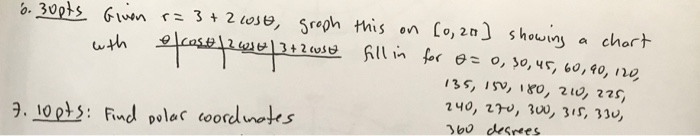 6. 30pts Given r = 3 + 2 cosθ, graph this on [0, 2π] showing a chart
with θ | cosθ | 2cosθ | 3+2cosθ fill in for θ = 0, 30, 45, 60, 90, 120,
135, 150, 180, 210, 225,
240, 270, 300, 315, 330,
360 degrees
7. 10pts: Find polar coordinates